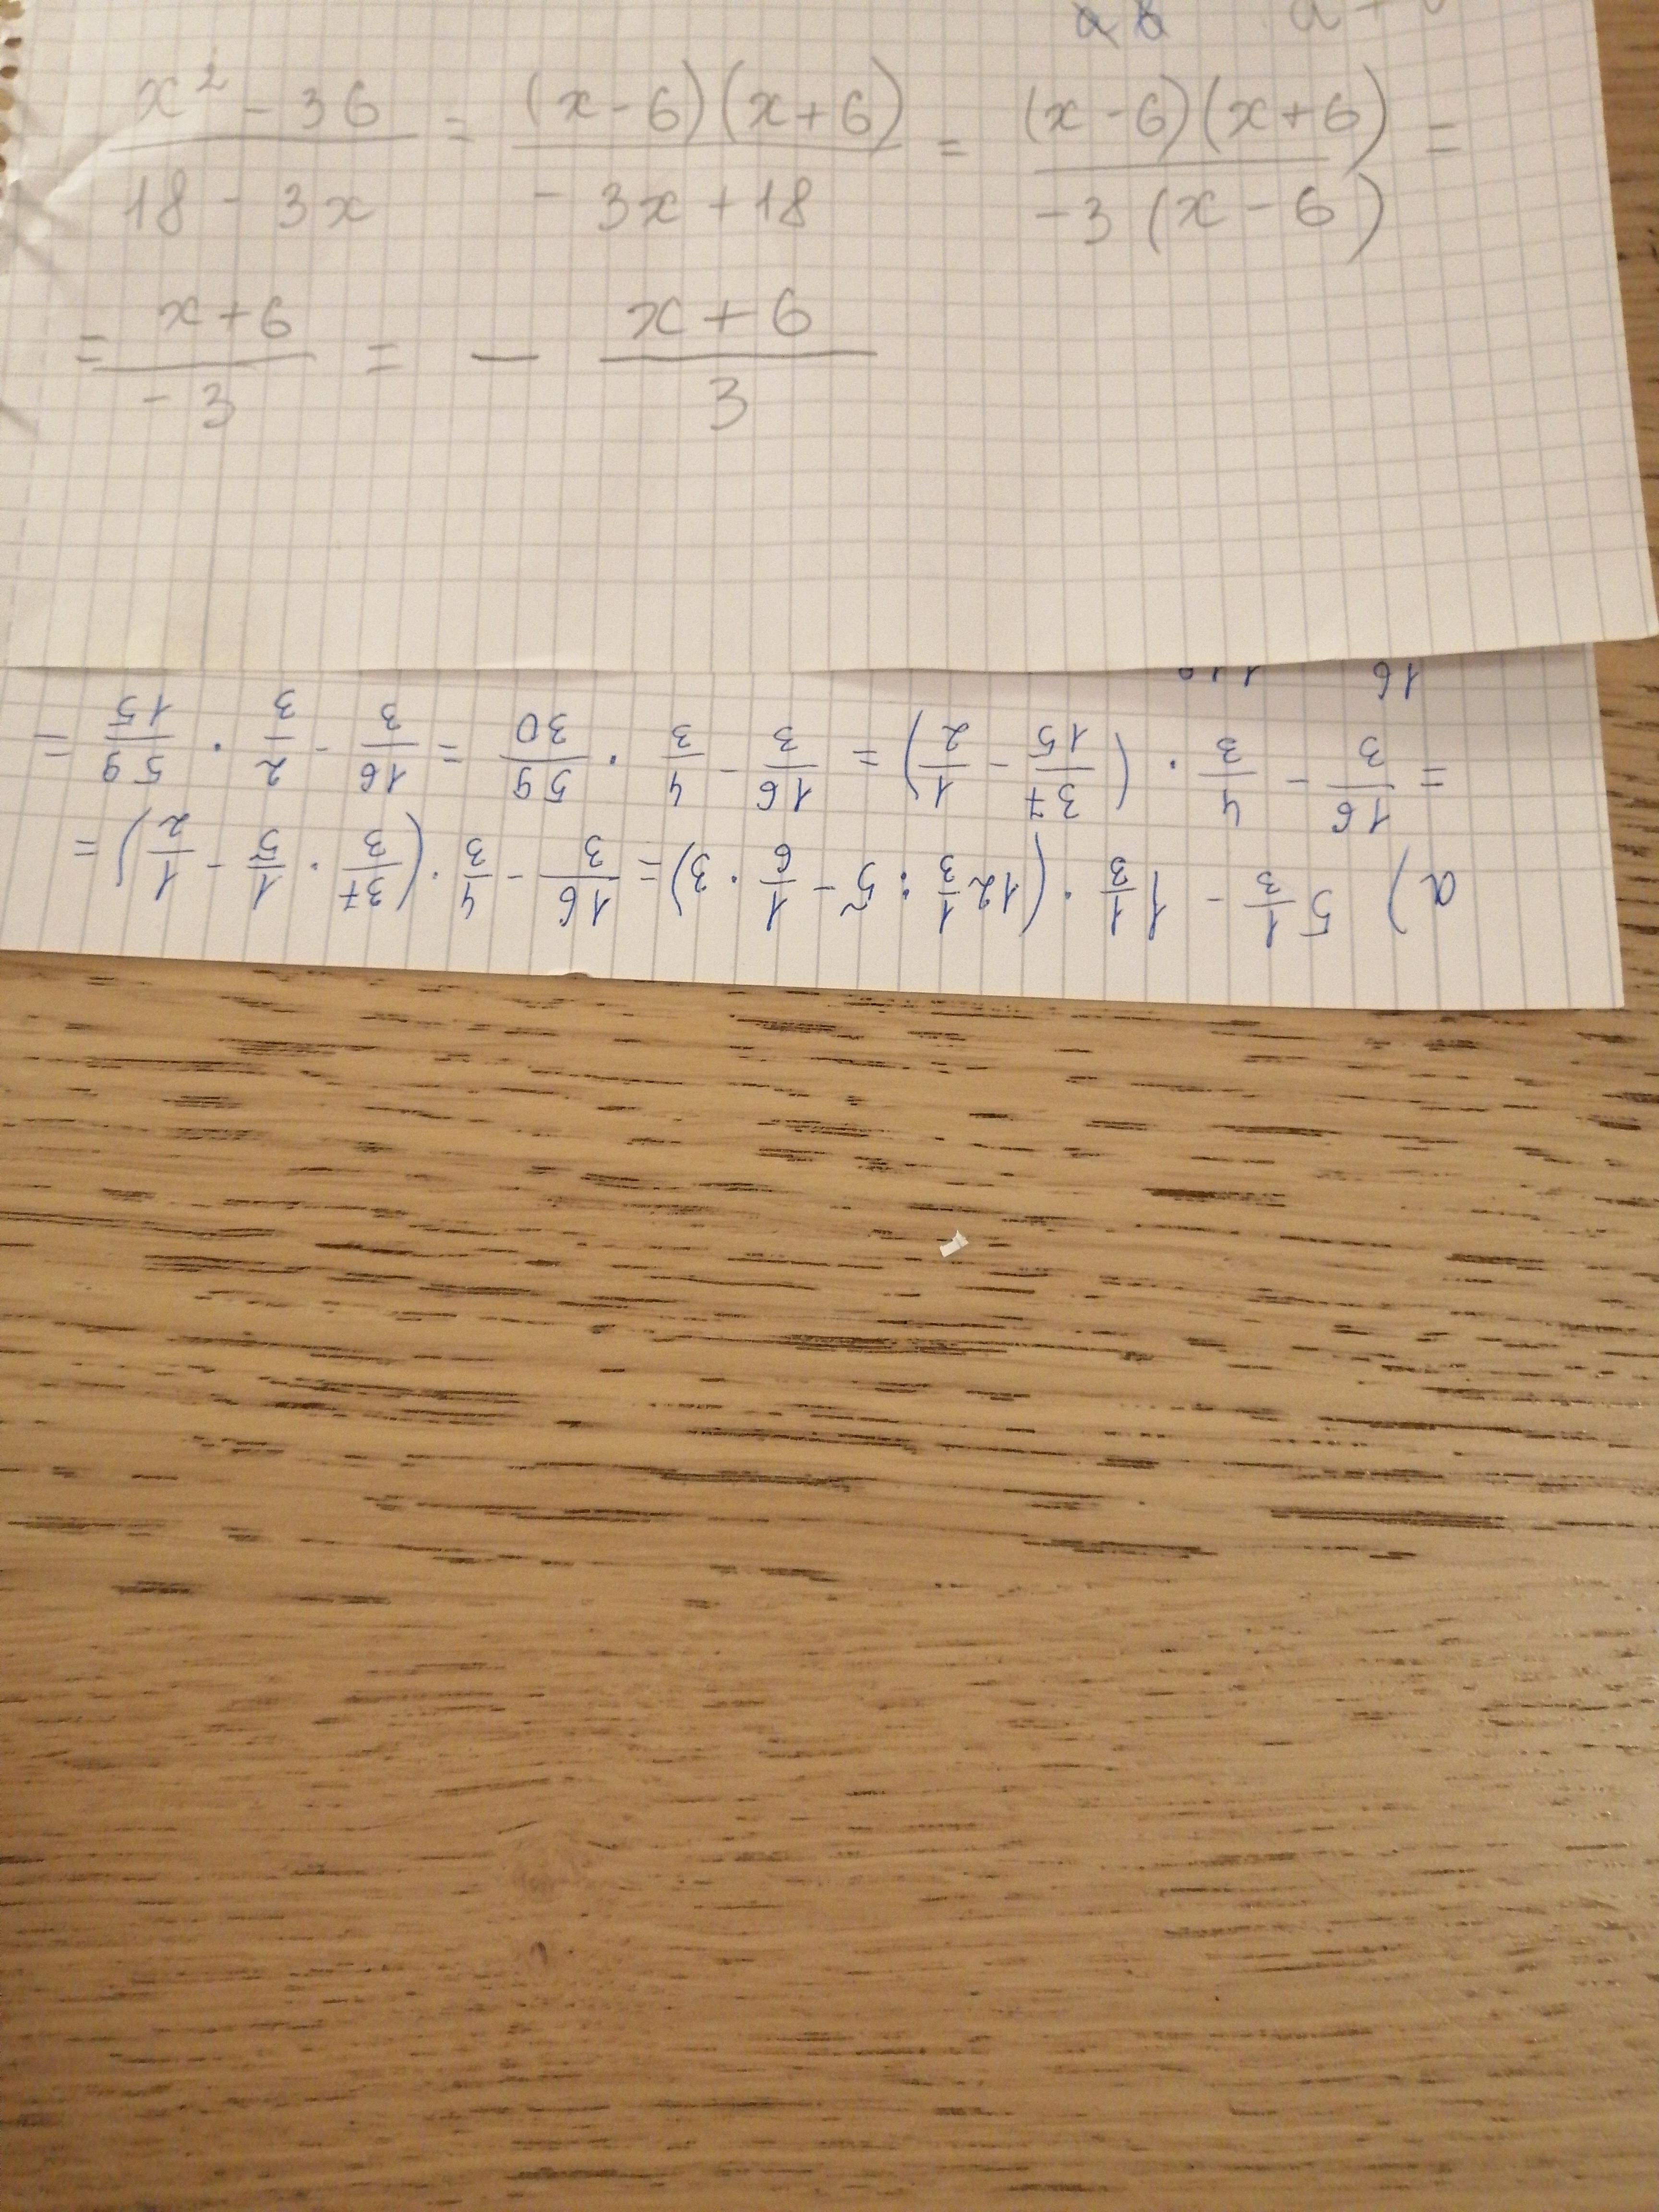 x² - 36 / 18 - 3x = (x-6)(x+6) / - 3x + 18 = (x-6)(x+6) / -3 (x-6) =
= x+6 / -3 = - x+6 / 3
a) 5 1/3 - 1 1/3 · (12 1/3 : 5 - 1/6 · 3) = 16/3 - 4/3 · (37/3 · 1/5 - 1/2) =
= 16/3 - 4/3 · (37/15 - 1/2) = 16/3 - 4/3 · 59/30 = 16/3 - 2/3 · 59/15 =
16